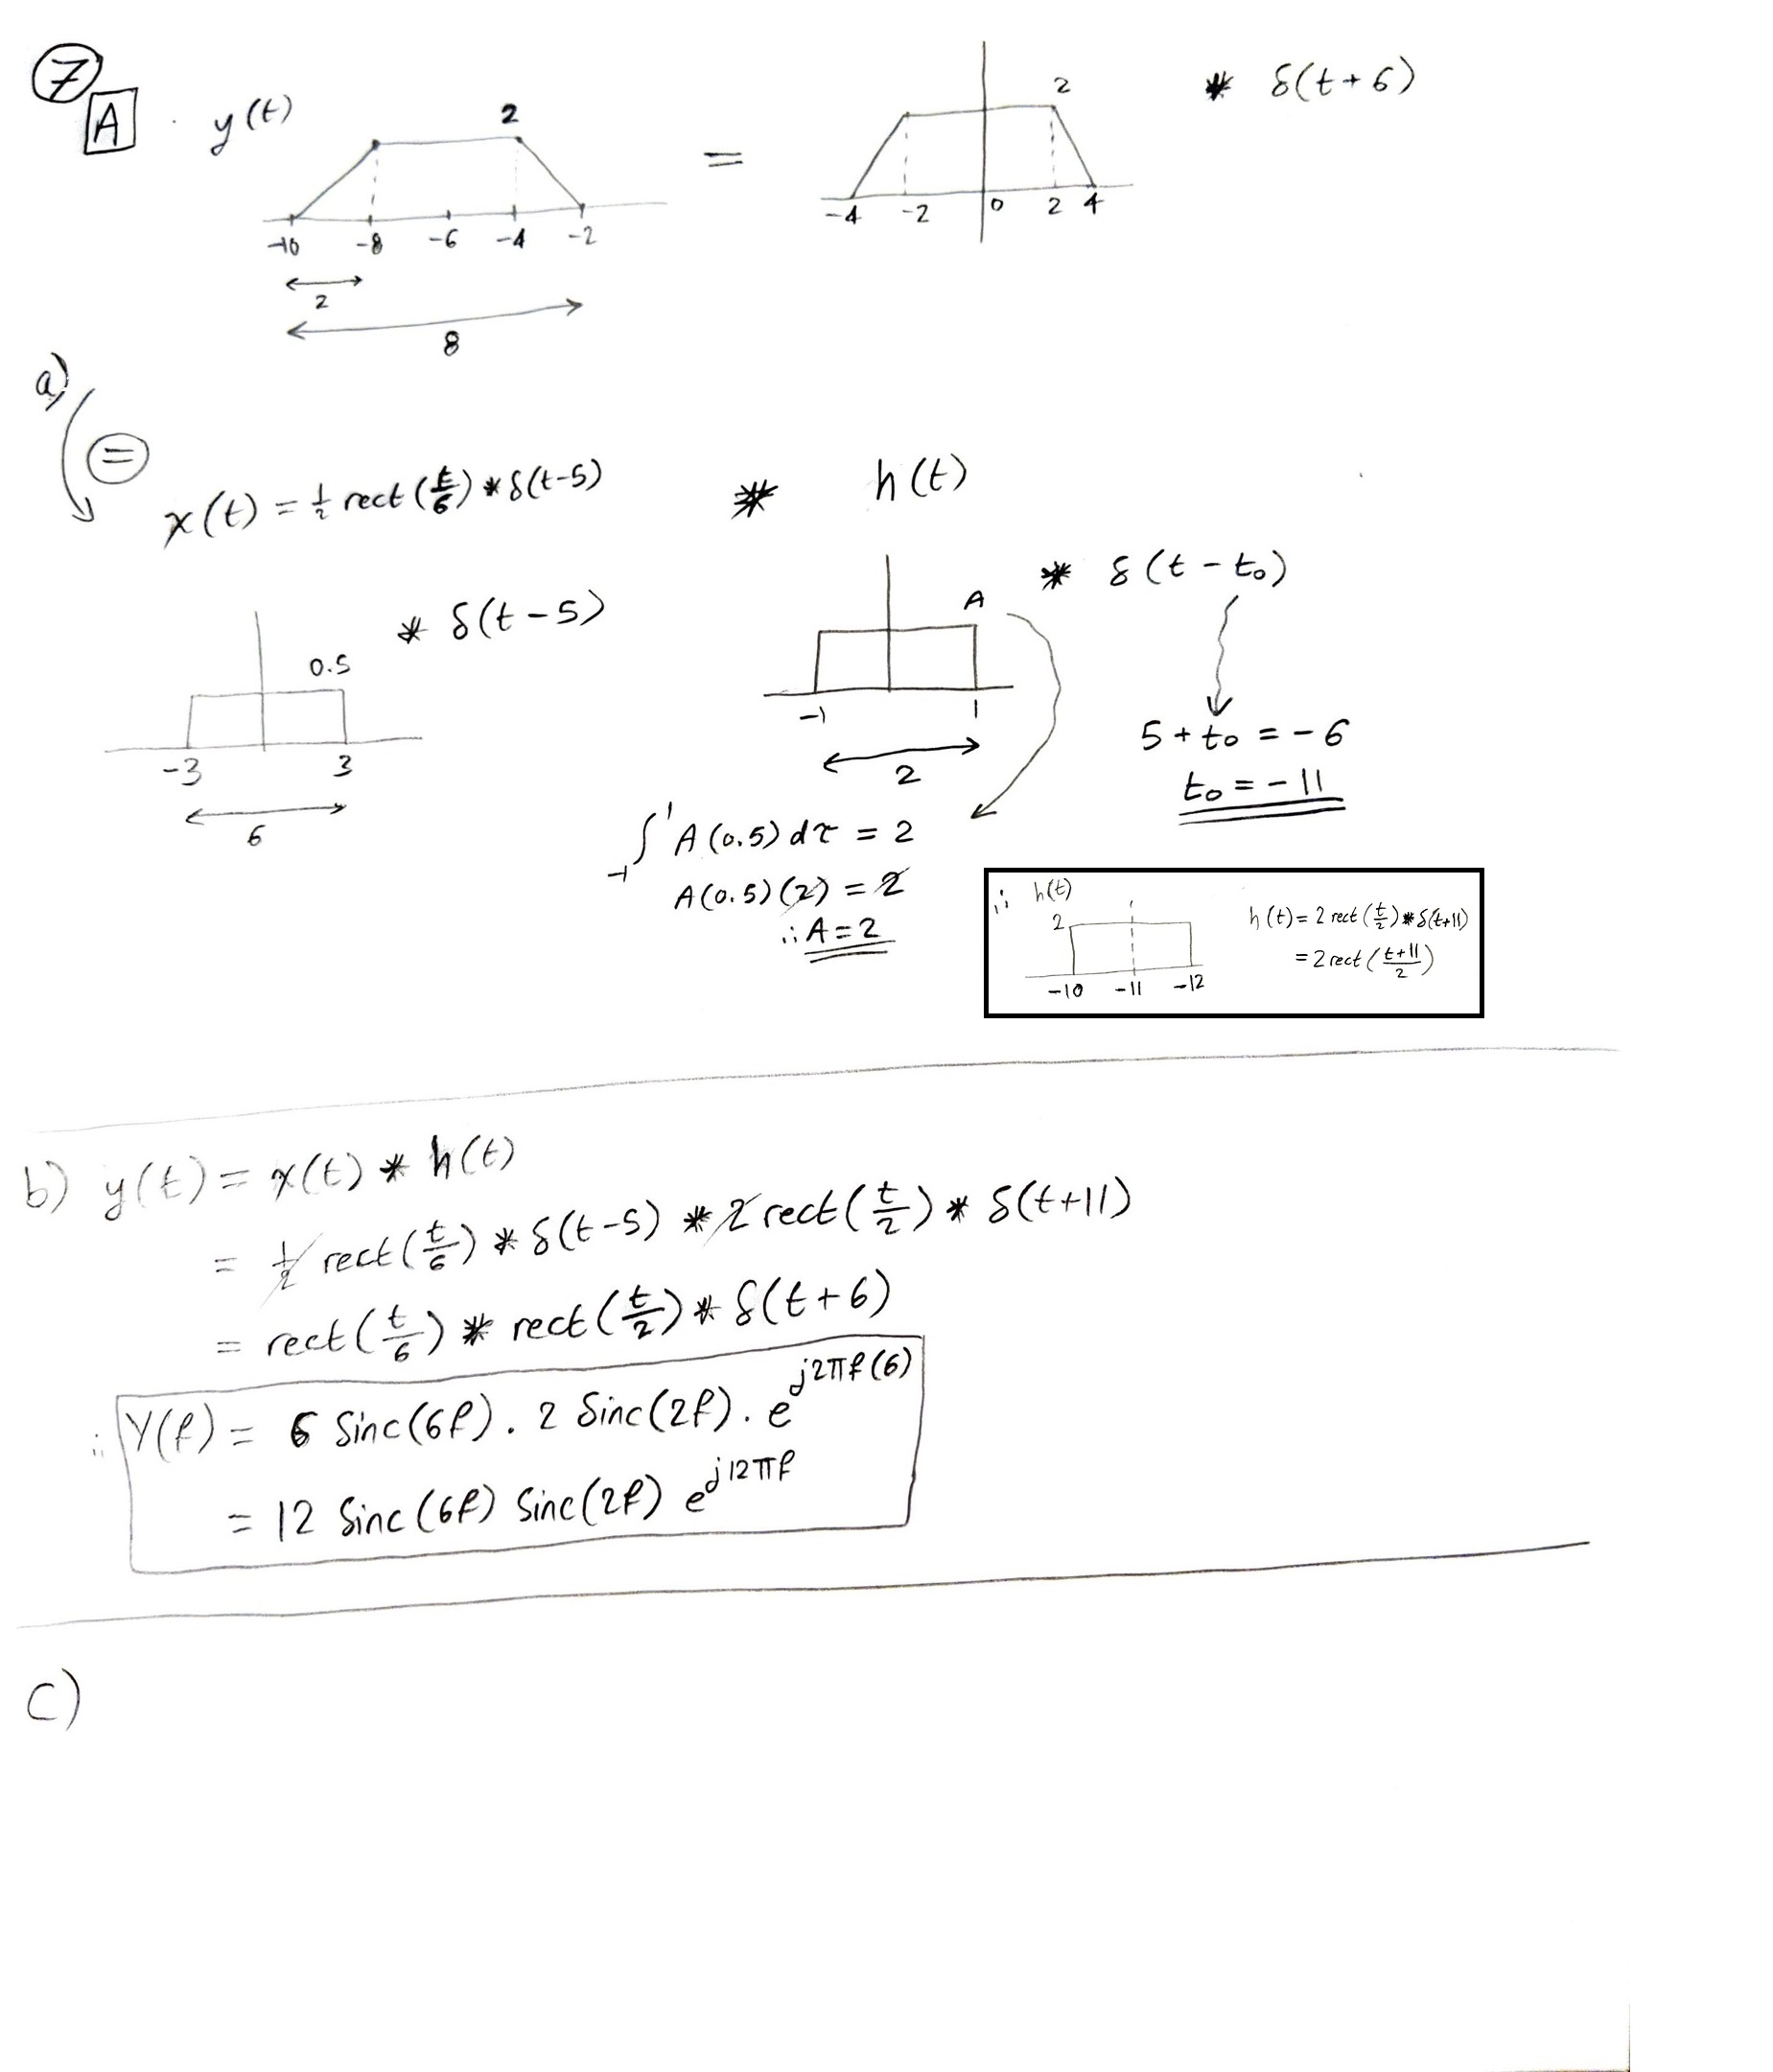 7
A
y(t)
2
-10 -8 -6 -4 -2
2
8
=
2
-4 -2 0 2 4
* δ(t+6)
a)
=
x(t) = 1/2 rect(t/6) * δ(t-5) * h(t)
0.5
* δ(t-5)
-3 3
6
A
* δ(t-t₀)
-1 1
2
5+t₀ = -6
t₀ = -11
∫₋₁¹ A(0.5)dτ = 2
A(0.5)(2) = 2
∴ A=2
∴ h(t)
2
-10 -11 -12
h(t) = 2 rect(t/2) * δ(t+11)
= 2 rect((t+11)/2)
b) y(t) = x(t) * h(t)
= 1/2 rect(t/6) * δ(t-5) * 2 rect(t/2) * δ(t+11)
= rect(t/6) * rect(t/2) * δ(t+6)
∴ Y(f) = 6 Sinc(6f) . 2 Sinc(2f) . e^j2πf(6)
= 12 Sinc(6f) Sinc(2f) e^j12πf
c)